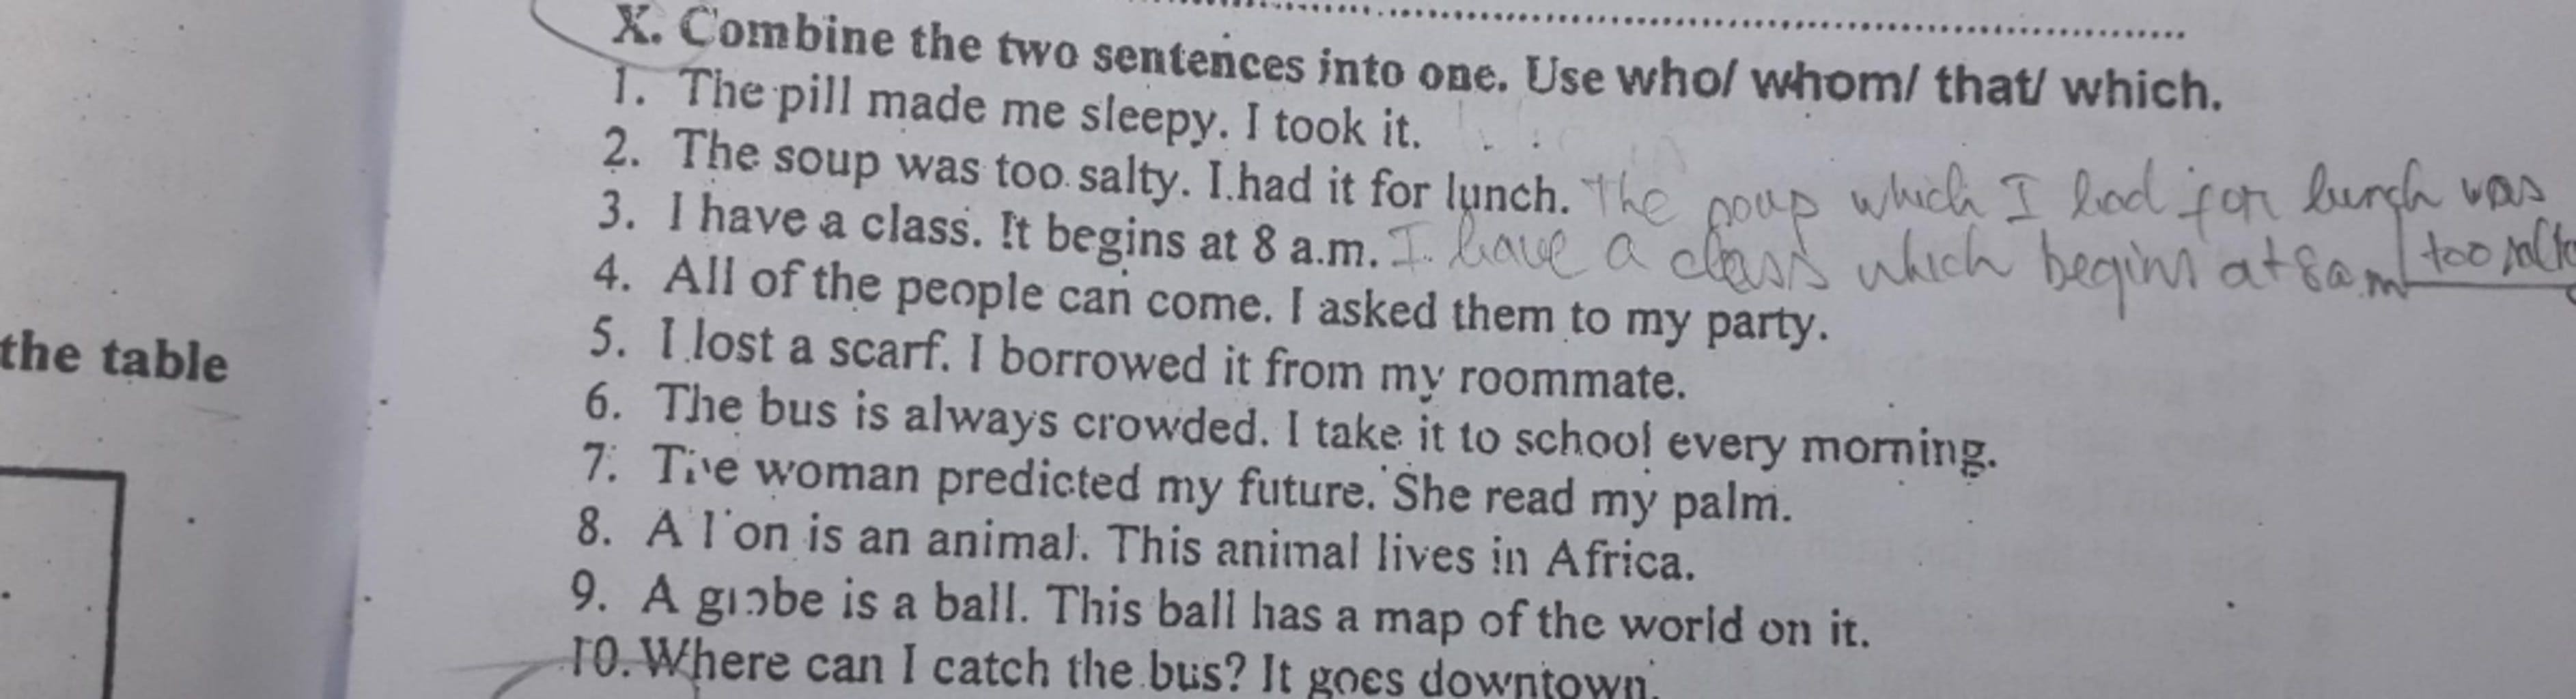 X. Combine the two sentences into one. Use who/ whom/ that/ which.
1. The pill made me sleepy. I took it.
2. The soup was too salty. I had it for lunch. The soup which I had for lunch was
too salty
3. I have a class. It begins at 8 a.m. I have a class which begins at 8 a.m
4. All of the people can come. I asked them to my party.
5. I lost a scarf. I borrowed it from my roommate.
6. The bus is always crowded. I take it to school every morning.
7. The woman predicted my future. She read my palm.
8. A lion is an animal. This animal lives in Africa.
9. A globe is a ball. This ball has a map of the world on it.
10. Where can I catch the bus? It goes downtown.
the table